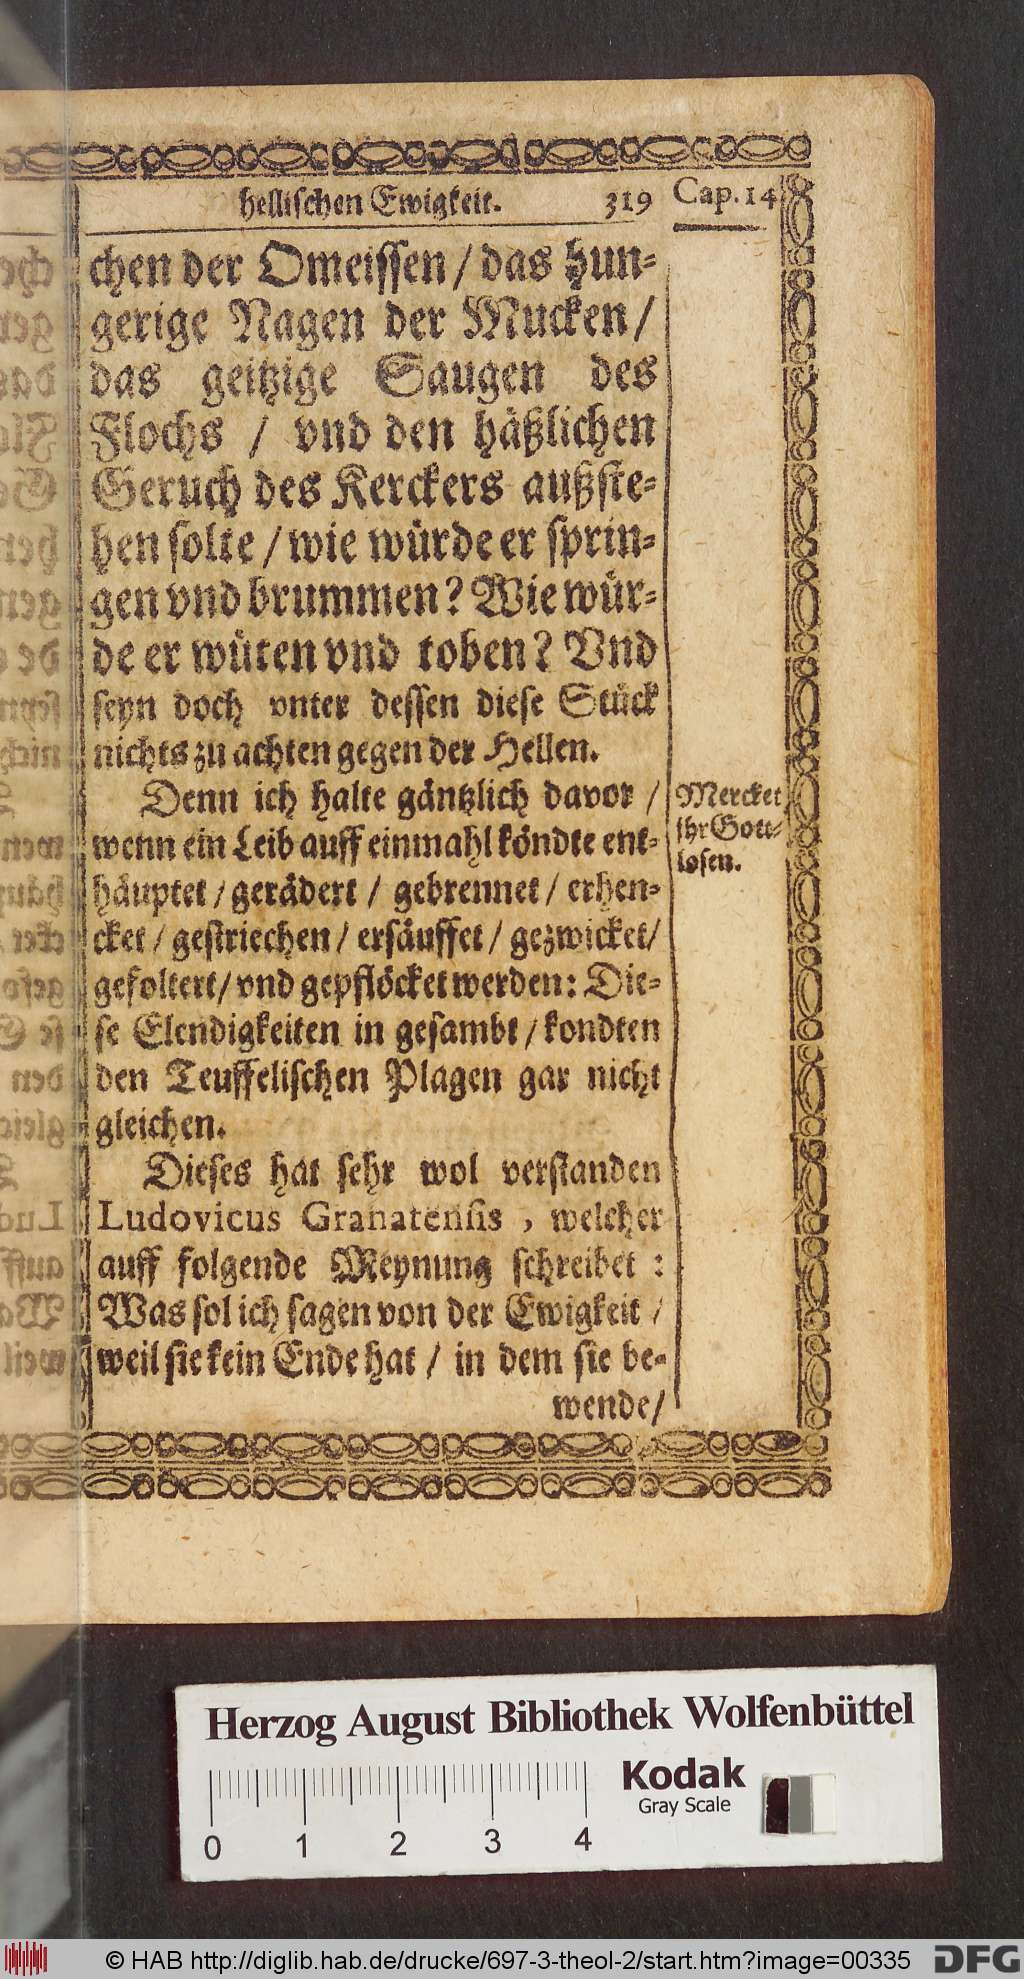 hellischen Ewigkeit. 319 Cap. 14
chen der Omeissen / das hun-
gerige Nagen der Mucken /
das geitzige Saugen des
Flochs / vnd den häßlichen
Geruch des Kerckers außste-
hen solte / wie würde er sprin-
gen vnd brummen? Wie wür-
de er wüten vnd toben? Vnd
seyn doch vnter dessen diese Stück
nichts zu achten gegen der Hellen.
Denn ich halte gäntzlich davor /
wenn ein Leib auff einmahl köndte ent-
häuptet / gerädert / gebrennet / erhen-
cket / gestriechen / ersäuffet / gezwicket /
gefoltert / vnd gepflöcket werden: Die-
se Elendigkeiten in gesambt / kondten
den Teuffelischen Plagen gar nicht
gleichen.
Dieses hat sehr wol verstanden
Ludovicus Granatensis , welcher
auff folgende Meynung schreibet :
Was sol ich sagen von der Ewigkeit /
weil sie kein Ende hat / in dem sie be-
wende /
Mercket
ihr Gott-
losen.
Herzog August Bibliothek Wolfenbüttel
Kodak
Gray Scale
0 1 2 3 4
© HAB http://diglib.hab.de/drucke/697-3-theol-2/start.htm?image=00335
DFG